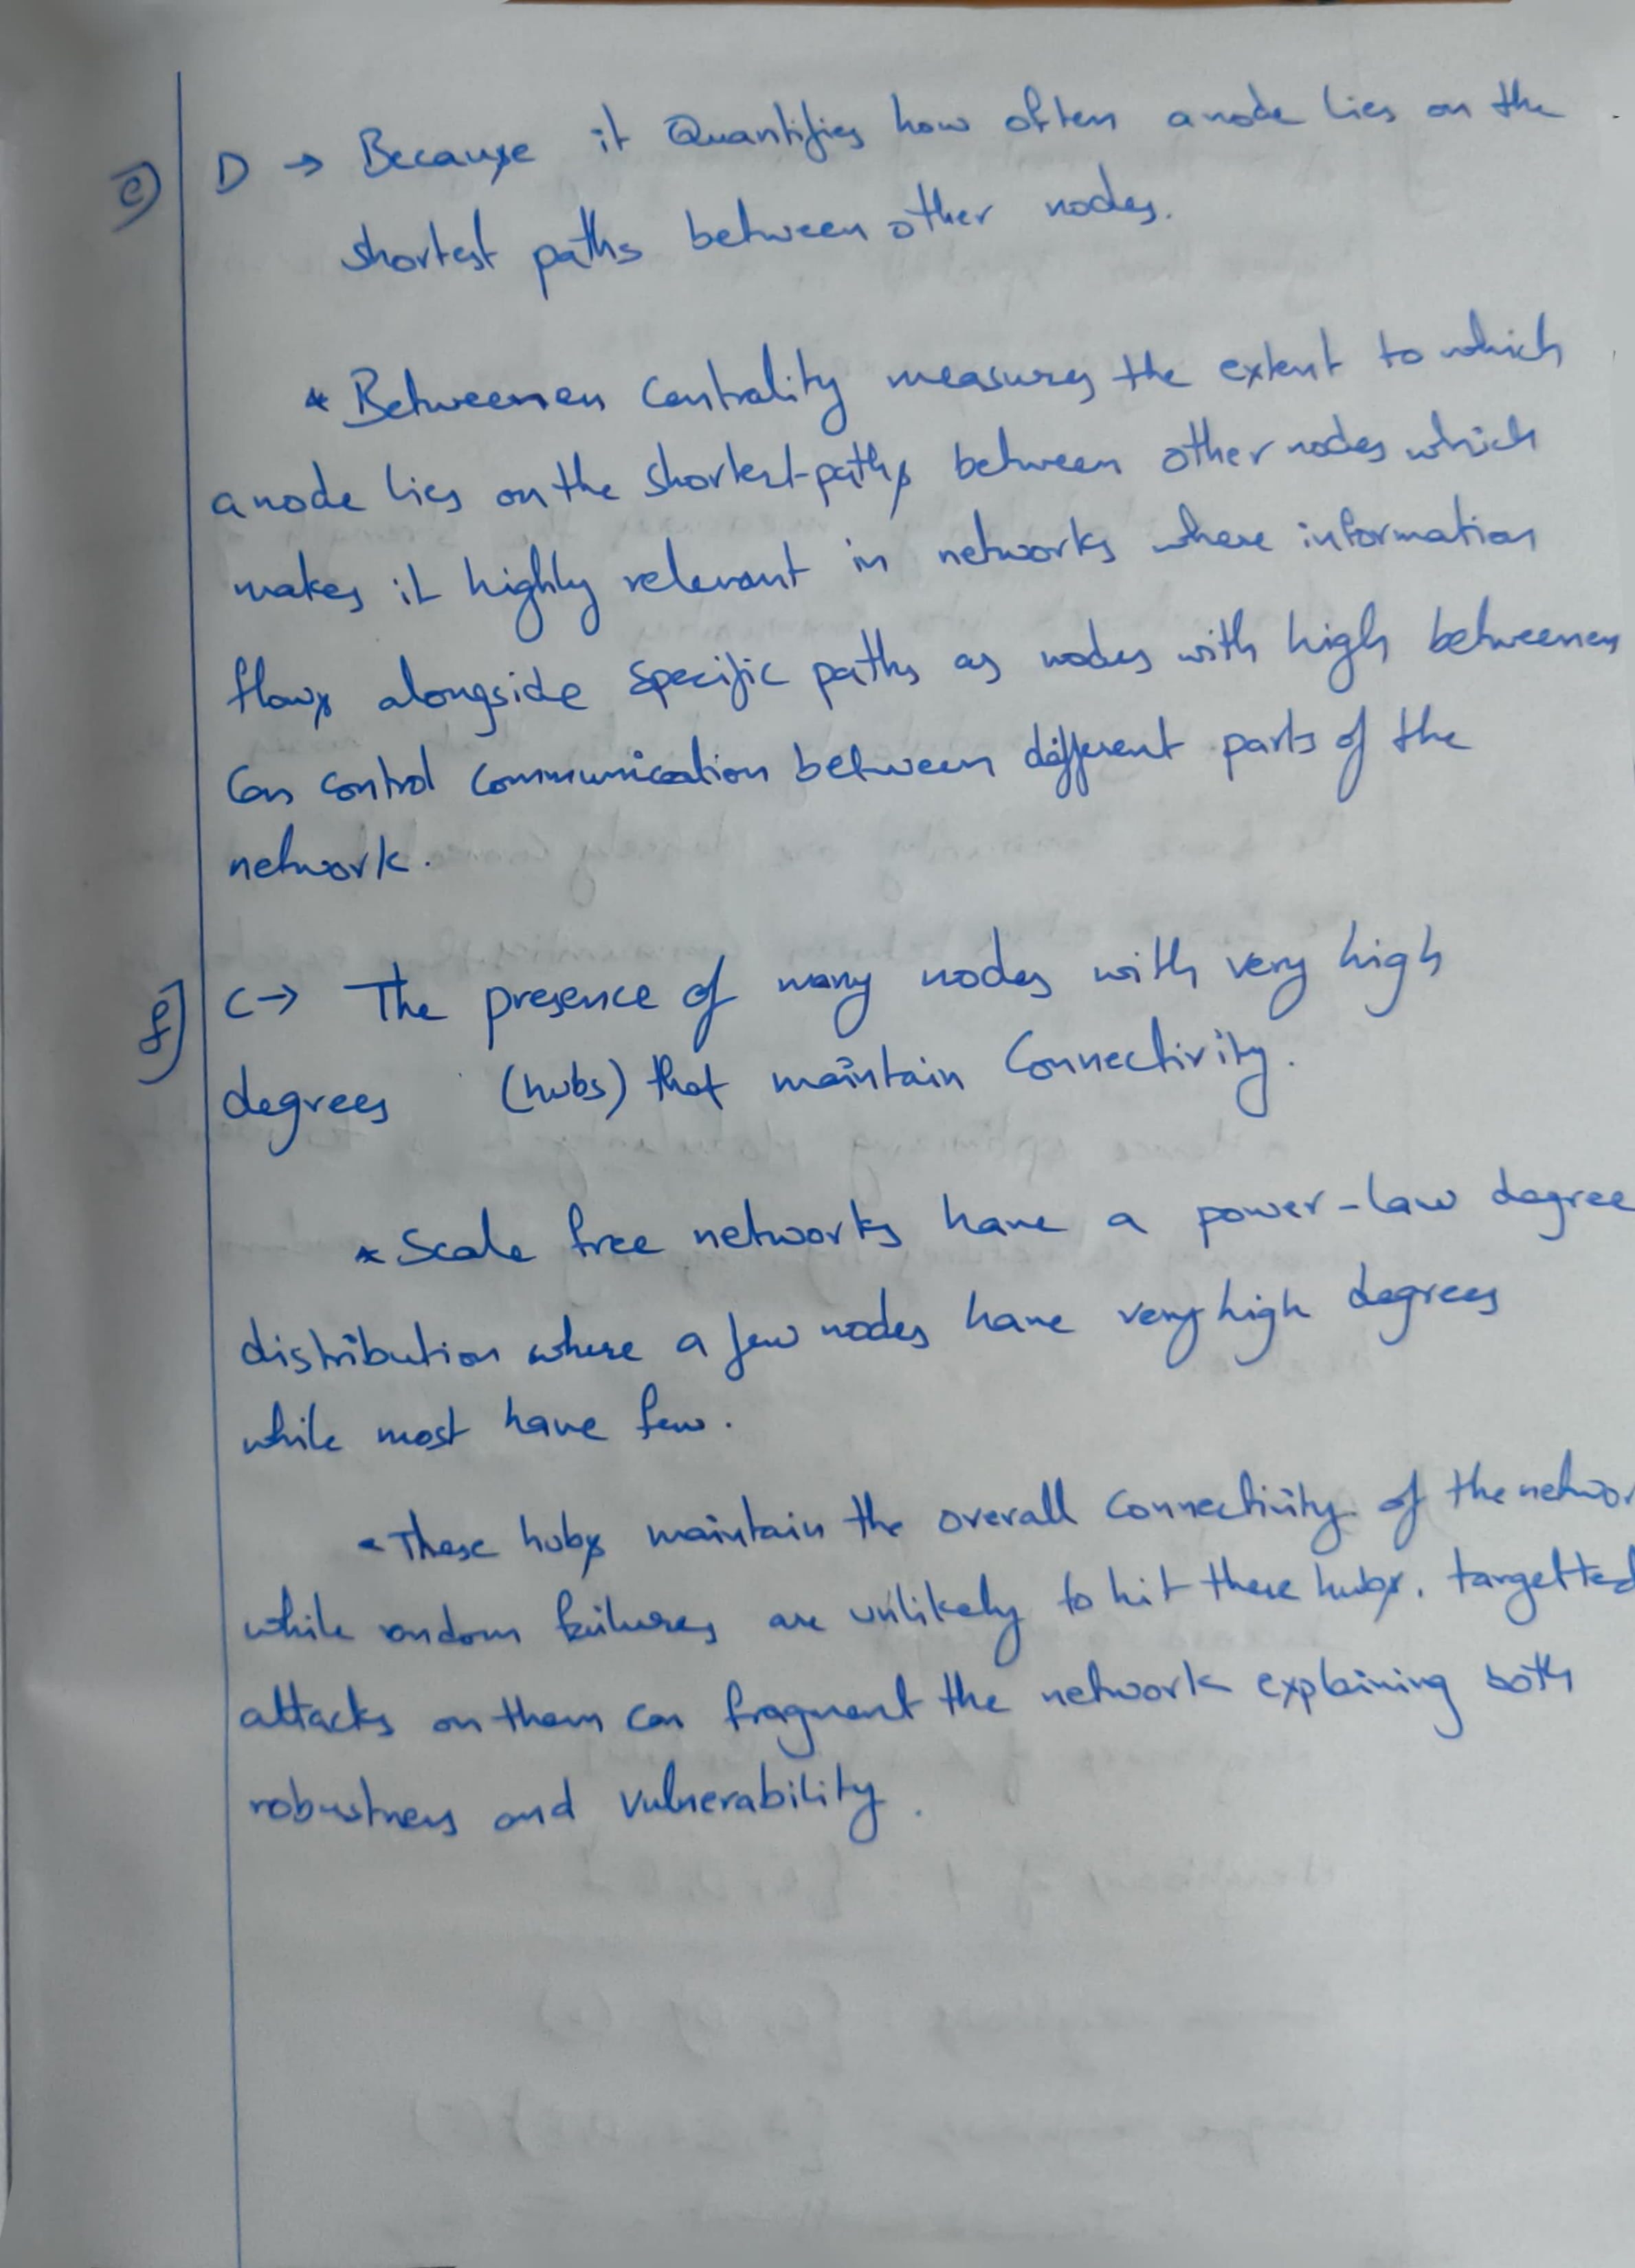 e) D → Because it Quantifies how often a node lies on the
shortest paths between other nodes.
* Betweennen Centrality measures the extent to which
a node lies on the shortest-paths between other nodes which
makes it highly relevant in networks where information
flows alongside specific paths as nodes with high betweennes
can control communication between different parts of the
network.
f) C → The presence of many nodes with very high
degrees (hubs) that maintain Connectivity.
* Scale free networks have a power-law degree
distribution where a few nodes have very high degrees
while most have few.
- These hubs maintain the overall connectivity of the networ
while random failures are unlikely to hit these hubs. targetted
attacks on them can fragment the network explaining both
robustness and vulnerability.